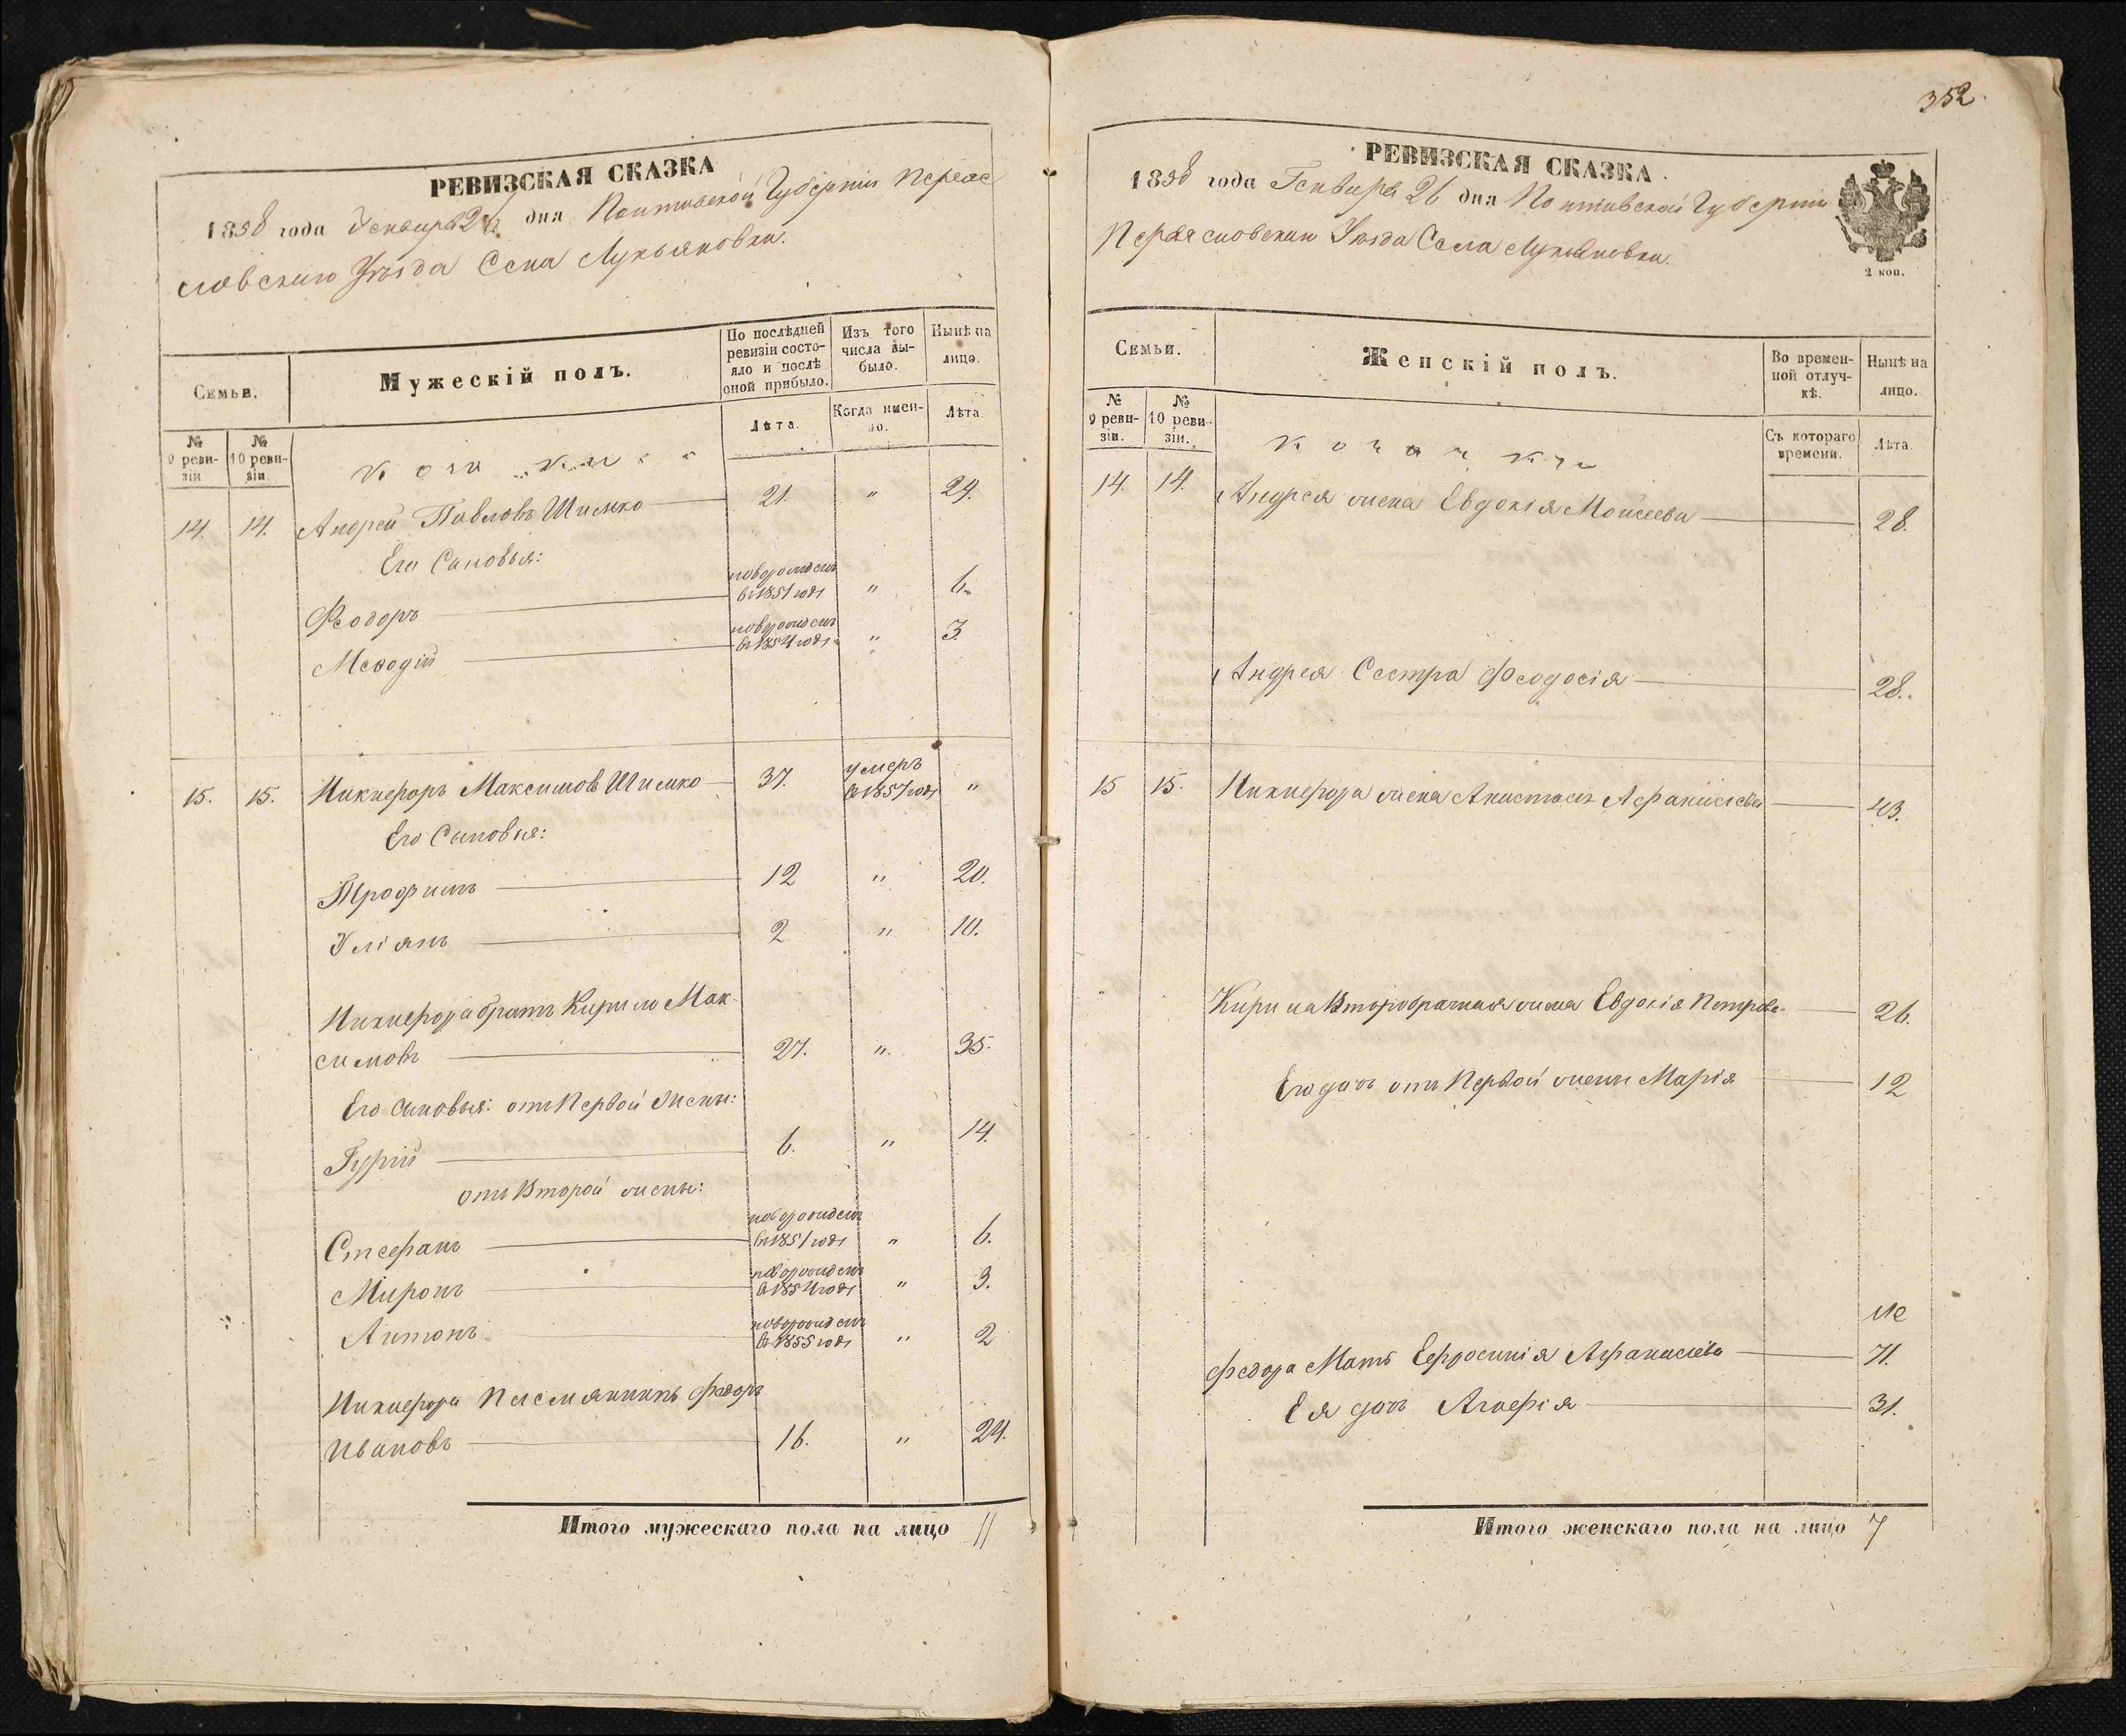 РЕВИЗСКАЯ СКАЗКА
1858 года Генваря 26 дня Полтавской Губерніи Переяс
ловскаго Уѣзда Села Лукьяновки.
Семьи.
Мужескій полъ.
По послѣдней ревизіи состояло и послѣ оной прибыло.
Изъ того числа выбыло.
Нынѣ на лицо.
№ 9 ревизіи
№ 10 ревизіи
Лѣта.
Когда именно.
Лѣта.
Козаки
14. 14. Андрей Павловъ Шимко 21. " 29.
Его Сыновья:
Феодоръ новорожденъ въ 1851 годѣ " 6.
Мефодій новорожденъ въ 1854 годѣ " 3.
15. 15. Никифоръ Максимовъ Шимко 37. умеръ въ 1857 годѣ "
Его Сыновья:
Трофимъ 12 " 20.
Уліянъ 2 " 10.
Никифора братъ Кирило Мак-
симовъ 27. " 35.
Его Сыновья: отъ Первой жены:
Гурій 6. " 14.
отъ Второй жены:
Стефанъ новорожденъ въ 1851 годѣ " 6.
Миронъ новорожденъ въ 1854 годѣ " 3.
Антонъ новорожденъ въ 1855 годѣ " 2
Никифора Племянникъ Федоръ
Ивановъ 16. " 24.
Итого мужескаго пола на лицо 11
352.
РЕВИЗСКАЯ СКАЗКА.
1858 года Генваря 26 дня Полтавской Губерніи
Переясловскаго Уѣзда Села Лукьяновки.
2 коп.
Семьи.
Женскій полъ.
Во временной отлучкѣ.
Нынѣ на лицо.
№ 9 ревизіи.
№ 10 ревизіи.
Съ котораго времени.
Лѣта.
Козачки
14. 14. Андрея жена Евдокія Моисеева 28.
Андрея Сестра Феодосія 28.
15 15. Никифора жена Анастасія Афанасіева 43.
Кирила Второбрачная жена Евдокія Петрова 26.
Его дочь отъ Первой жены Марія 12
Федора Мать Ефросинія Афанасіева 71.
Ея дочь Агафія 31.
Итого женскаго пола на лицо 7